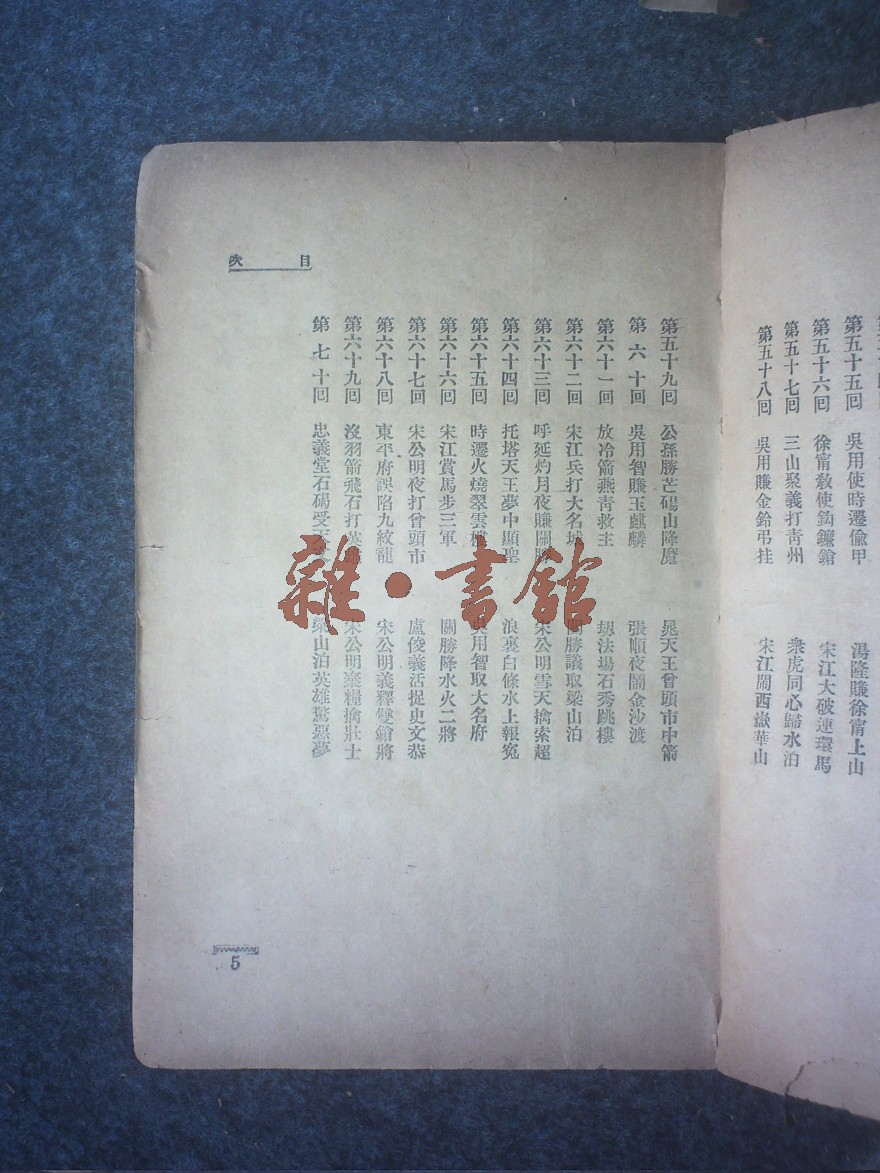 第五十五回　吳用使時遷偸甲　湯隆賺徐甯上山
第五十六回　徐甯敎使鈎鐮鎗　宋江大破連環馬
第五十七回　三山聚義打靑州　衆虎同心歸水泊
第五十八回　吳用賺金鈴弔挂　宋江鬧西嶽華山
目次
第五十九回　公孫勝芒碭山降魔　晁天王曾頭市中箭
第六十回　吳用智賺玉麒麟　張順夜鬧金沙渡
第六十一回　放冷箭燕靑救主　刼法場石秀跳樓
第六十二回　宋江兵打大名城　關勝議取梁山泊
第六十三回　呼延灼月夜賺關勝　宋公明雪天擒索超
第六十四回　托塔天王夢中顯聖　浪裏白條水上報寃
第六十五回　時遷火燒翠雲樓　吳用智取大名府
第六十六回　宋江賞馬步三軍　關勝降水火二將
第六十七回　宋公明夜打曾頭市　盧俊義活捉史文恭
第六十八回　東平府誤陷九紋龍　宋公明義釋雙鎗將
第六十九回　沒羽箭飛石打英雄　宋公明棄糧擒壯士
第七十回　忠義堂石碣受天　梁山泊英雄驚惡夢
5
雜·書館